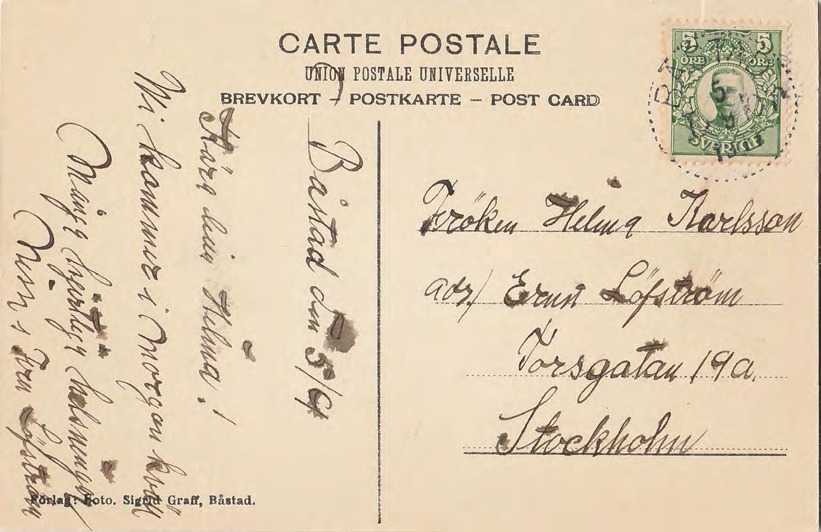 CARTE POSTALE
UNION POSTALE UNIVERSELLE
BREVKORT – POSTKARTE – POST CARD
5 5
ÖRE ÖRE
SVERIGE
Båstad den 5/9
Kära lilla Helma!
Vi kommer i morgon kväll
Många hjärtliga hälsningar
Löfström
Fröken Helma Karlsson
adr/ Ernst Löfström
Torsgatan 19a
Stockholm
Förlag: Foto. Sigrid Graff, Båstad.